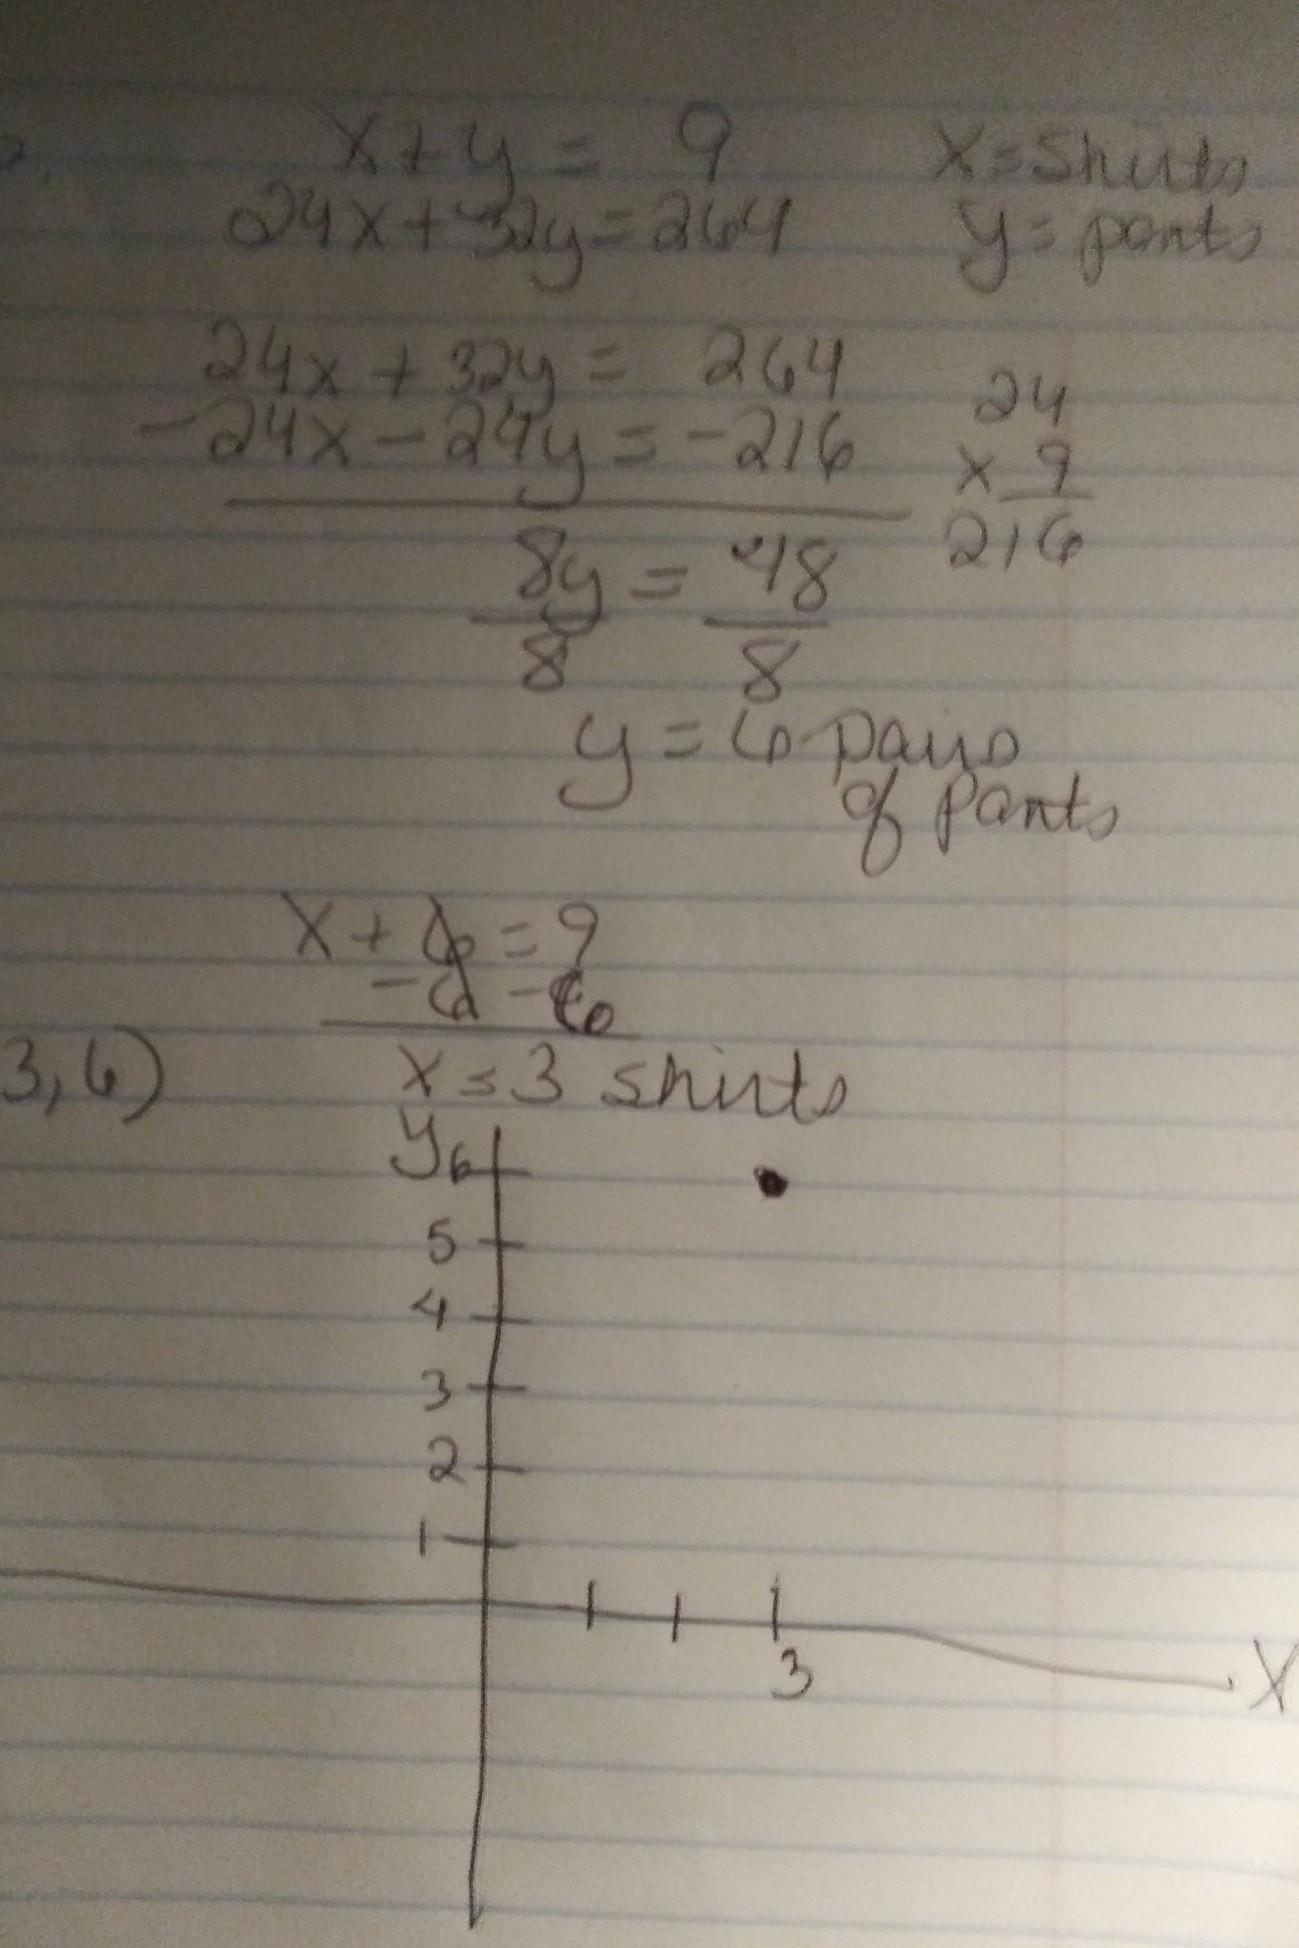 x + y = 9 x = shirts
24x + 32y = 264 y = pants
24x + 32y = 264
-24x - 24y = -216
24
x 9
216
8y = 48
8 8
y = 6 pairs
of pants
x + 6 = 9
-6 -6
3,6) x = 3 shirts
y
6
5
4
3
2
1
3
X